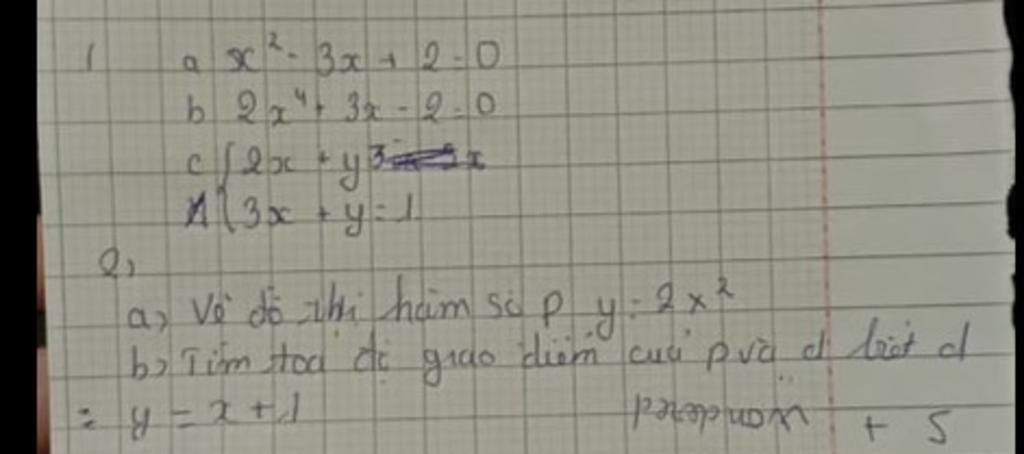 1 a x² - 3x + 2 = 0
b 2x⁴ + 3x - 2 = 0
c { 2x + y 3 x
{ 3x + y = 1
2,
a) Vẽ đồ thị hàm số P y = 2x²
b) Tìm toạ độ giao điểm của p và d biết d
= y = x + 1
+ 5